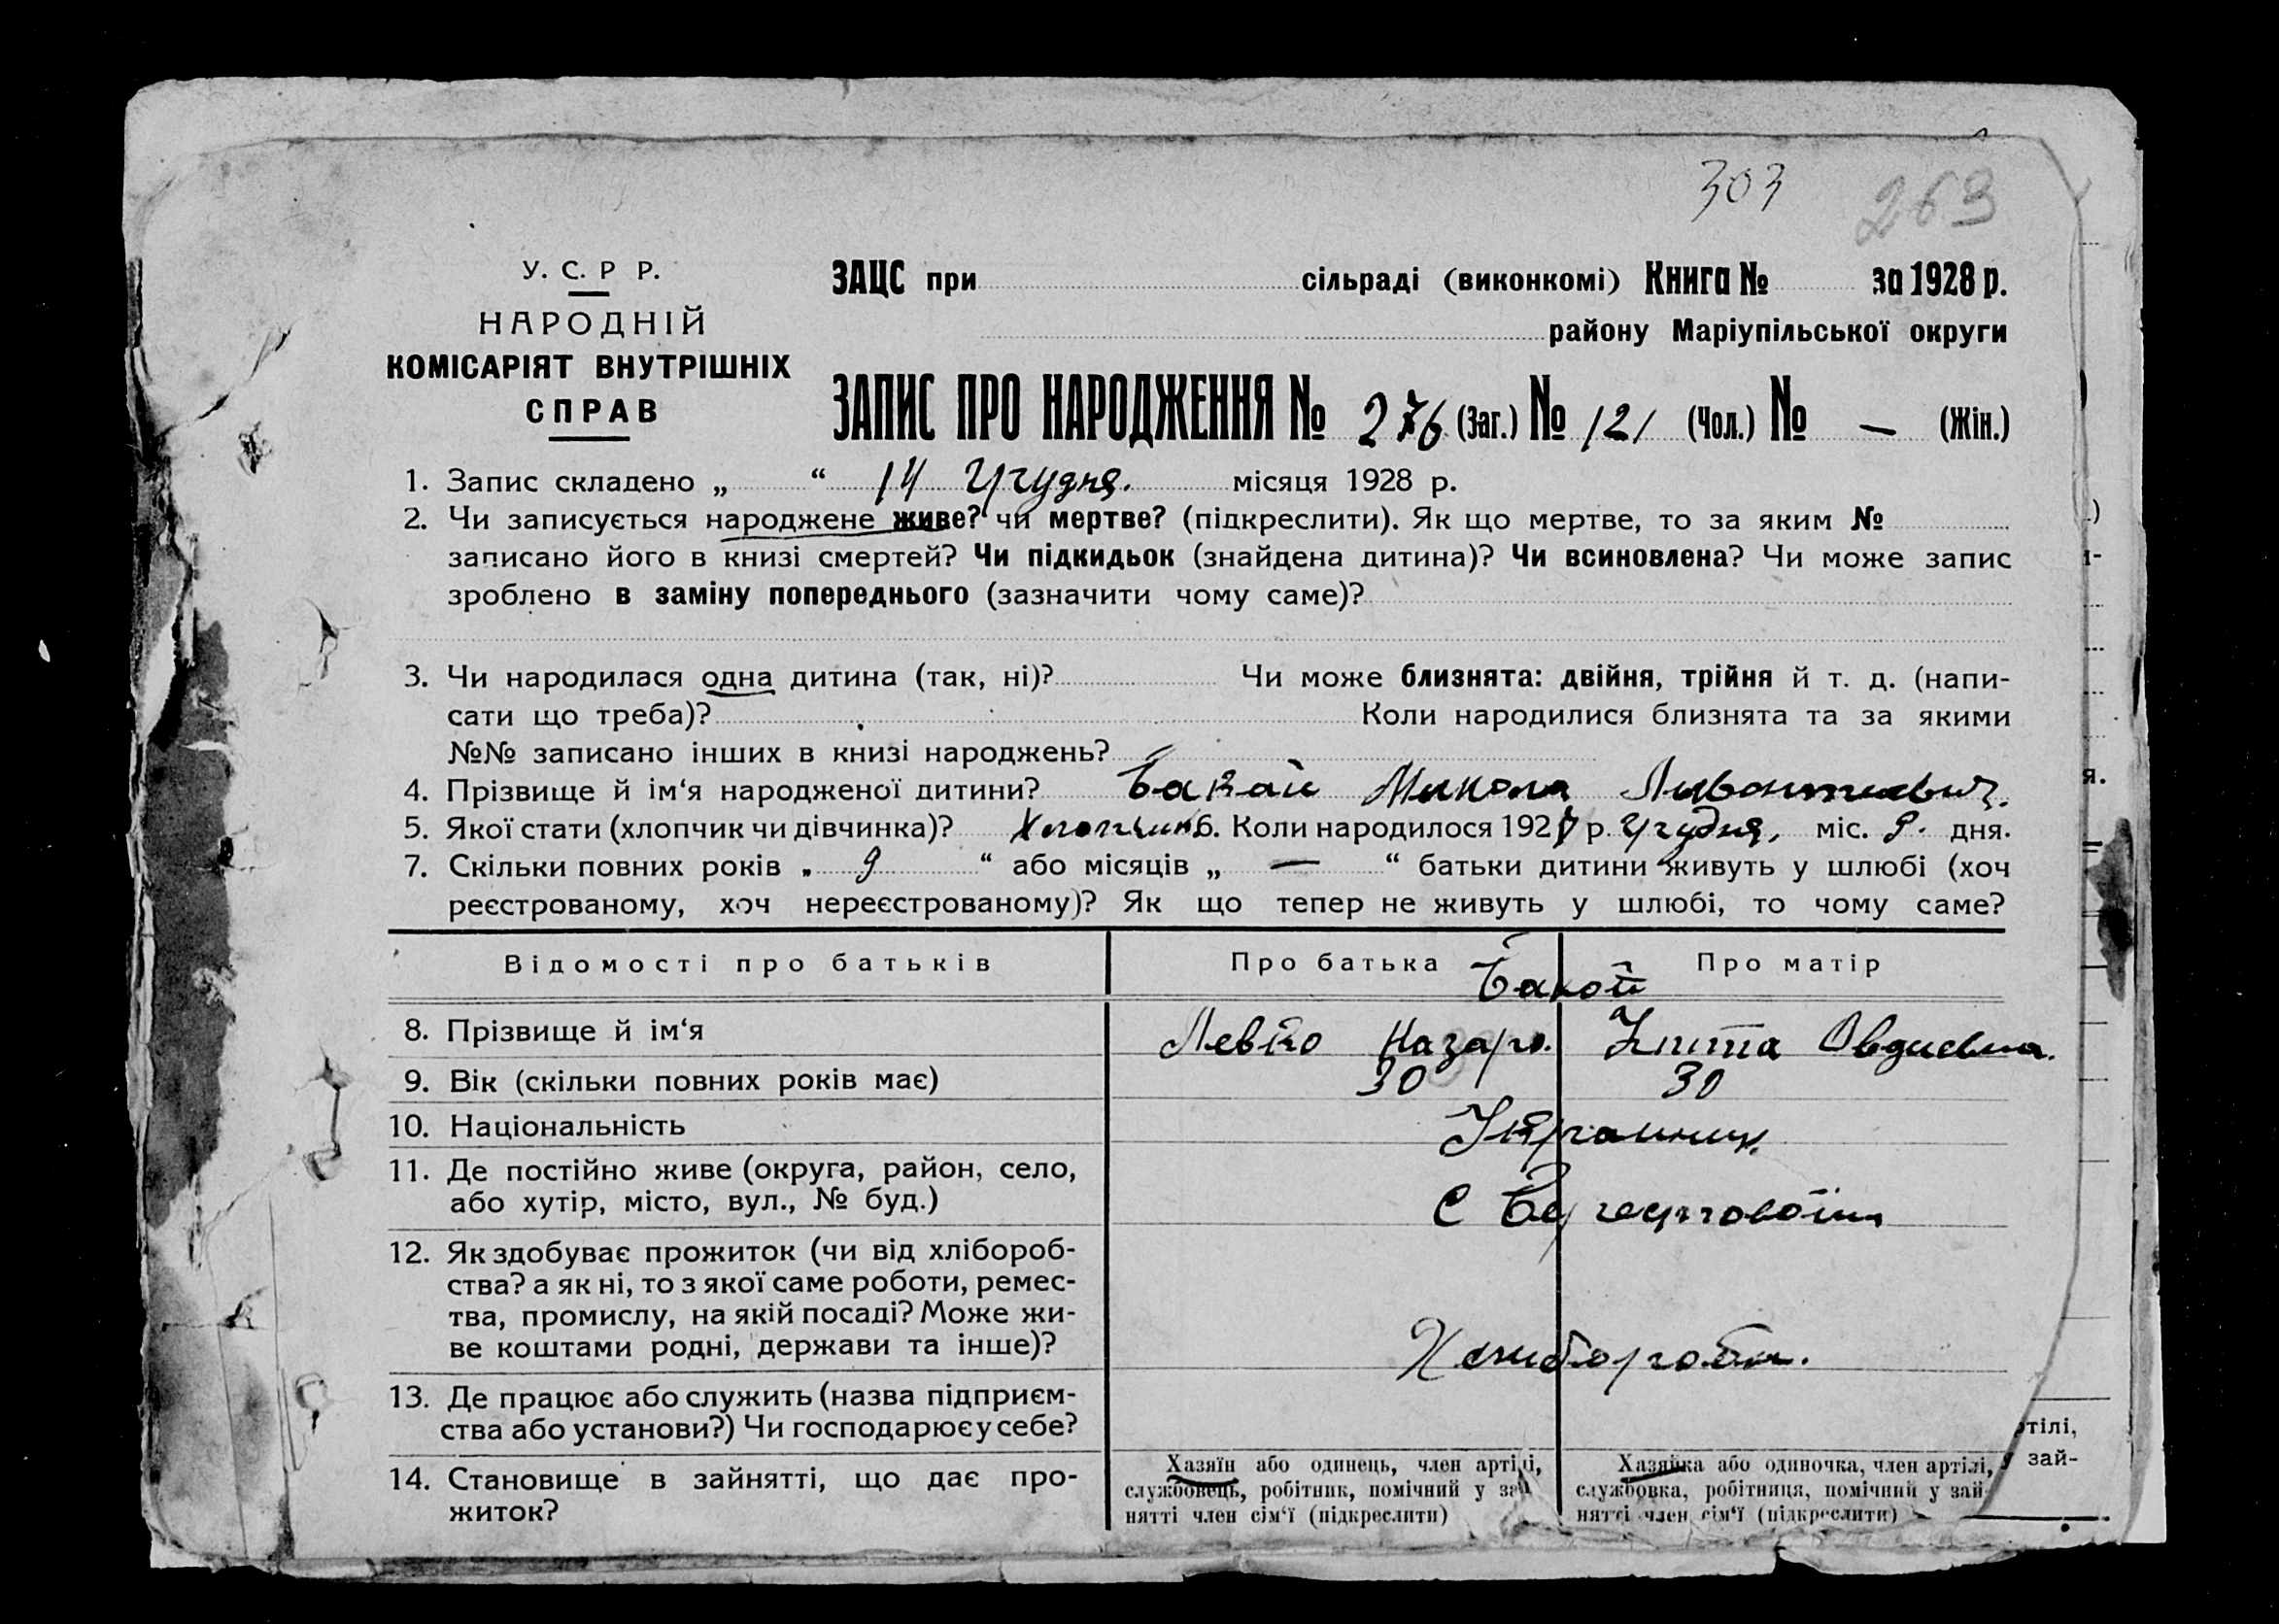 303 263
У. С. Р Р.
НАРОДНІЙ
КОМІСАРІЯТ ВНУТРІШНІХ
СПРАВ
ЗАЦС при сільраді (виконкомі) Книга № за 1928 р.
району Маріупільської округи
ЗАПИС ПРО НАРОДЖЕННЯ № 276 (Заг.) № 121 (Чол.) № — (Жін.)
1. Запис складено „ “ 14 Грудня. місяця 1928 р.
2. Чи записується народжене живе? чи мертве? (підкреслити). Як що мертве, то за яким №
записано його в книзі смертей? Чи підкидьок (знайдена дитина)? Чи всиновлена? Чи може запис
зроблено в заміну попереднього (зазначити чому саме)?
3. Чи народилася одна дитина (так, ні)? Чи може близнята: двійня, трійня й т. д. (напи-
сати що треба)? Коли народилися близнята та за якими
№№ записано інших в книзі народжень?
4. Прізвище й ім‘я народженої дитини? Бакай Микола
5. Якої стати (хлопчик чи дівчинка)? Хлопчик 6. Коли народилося 1928 р. Грудня, міс. 9. дня.
7. Скільки повних років „ 9 “ або місяців „ — “ батьки дитини живуть у шлюбі (хоч
реєстрованому, хоч нереєстрованому)? Як що тепер не живуть у шлюбі, то чому саме?
Відомості про батьків Про батька Про матір
8. Прізвище й ім‘я Левко Назаро.
9. Вік (скільки повних років має) 30 30
10. Національність
11. Де постійно живе (округа, район, село,
або хутір, місто, вул., № буд.) С
12. Як здобуває прожиток (чи від хлібороб-
ства? а як ні, то з якої саме роботи, ремес-
тва, промислу, на якій посаді? Може жи-
ве коштами родні, держави та інше)?
13. Де працює або служить (назва підприєм-
ства або установи?) Чи господарює у себе?
14. Становище в зайнятті, що дає про-
житок?
Хазяїн або одинець, член артілі,
службовець, робітник, помічний у зай
нятті член сім‘ї (підкреслити)
Хазяйка або одиночка, член артілі,
службовка, робітниця, помічний у зай-
нятті член сім‘ї (підкреслити)